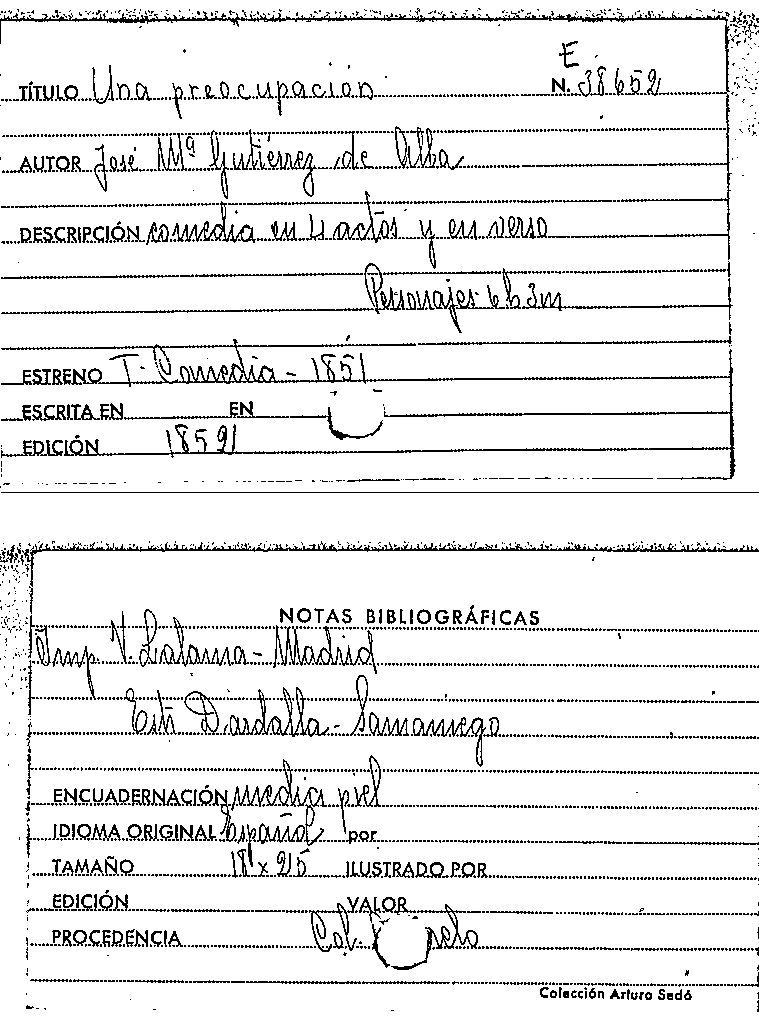 E
TÍTULO Una preocupación N. 38652
AUTOR José Mª Gutiérrez de Alba
DESCRIPCIÓN comedia en 4 actos y en verso
Personajes 6 h 3 m
ESTRENO T. Comedia - 1851
ESCRITA EN EN
EDICIÓN
NOTAS BIBLIOGRÁFICAS
Imp V. Lalama - Madrid
Dardalla - Samaniego
ENCUADERNACIÓN media piel
IDIOMA ORIGINAL Español por
TAMAÑO ILUSTRADO POR
EDICIÓN VALOR
PROCEDENCIA Col.
Colección Arturo Sedó